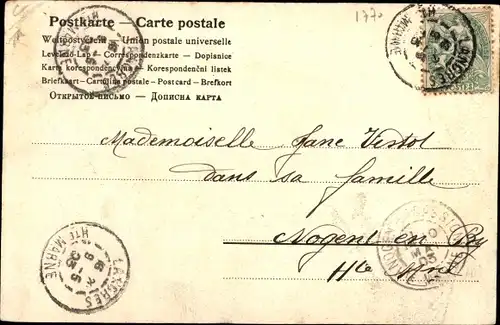 Postkarte — Carte postale
Weltpostverein — Union postale universelle
Levelező-Lap — Correspondenzkarte — Dopisnice
Karta korespondencyjna — Korespondenční listek
Briefkaart — Cartolina postale — Postcard — Brefkort
Открытое письмо — Дописна карта
1770
LANGRES
HTE MARNE
LANGRES
HTE MARNE
Mademoiselle Jane
dans sa famille
Nogent en By
Hte Mne
LANGRES
HTE MARNE
NOGENT-EN-BASSIGNY